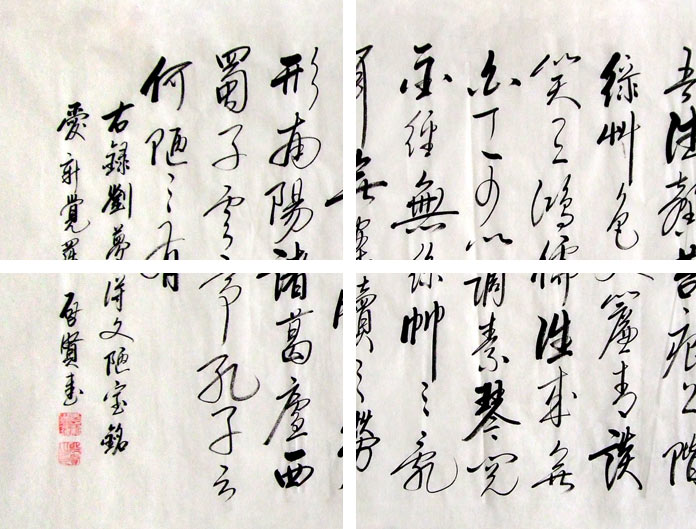 吾德馨苔痕上階
綠艸色入簾青談
笑有鴻儒往來無
白丁可以調素琴閱
金經無絲竹之亂
耳無案牘之勞
形南陽諸葛廬西
蜀子雲亭孔子云
何陋之有
右録劉夢得文陋室銘
愛新覺羅啟賢書